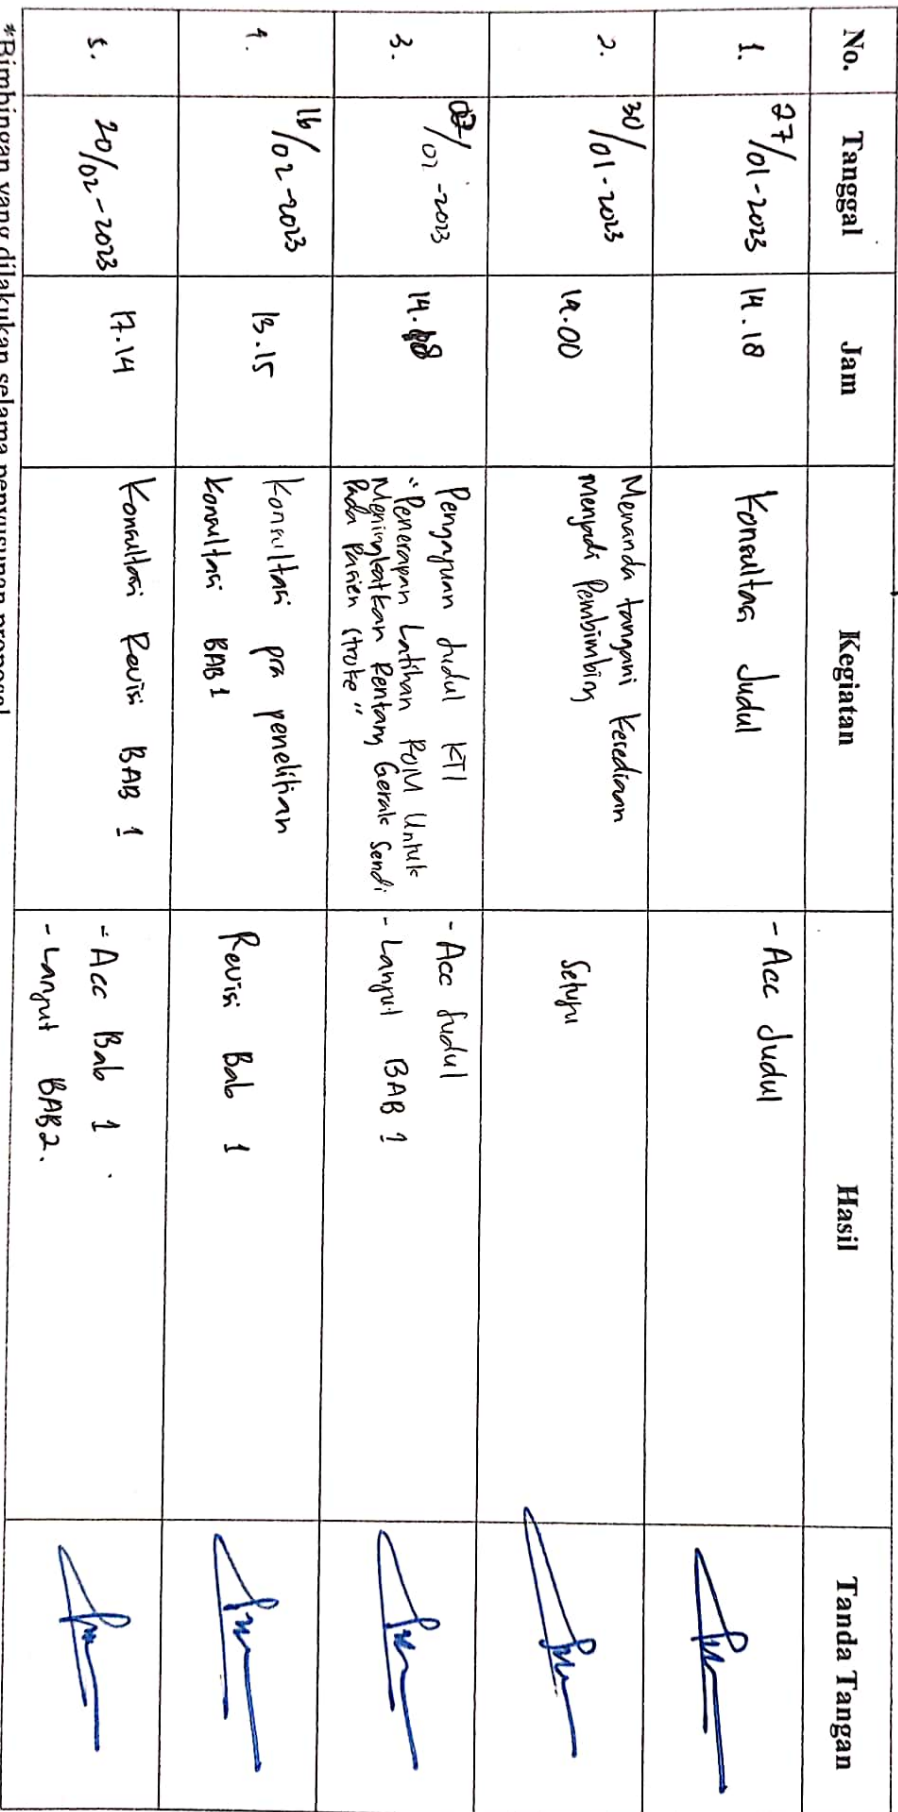 No. Tanggal Jam Kegiatan Hasil Tanda Tangan
1. 27/01-2023 14.18 Konsultasi Judul - Acc Judul
2. 30/01-2023 14.00 Menanda tangani Kesediaan Setuju
menjadi Pembimbing
3. /02-2023 14. Pengajuan Judul KTI - Acc Judul
"Penerapan Latihan ROM Untuk - Lanjut BAB 1
Meningkatkan Rentang Gerak Sendi
Pada Pasien Stroke"
4. 16/02-2023 13.15 Konsultasi pra penelitian Revisi Bab 1
Konsultasi BAB 1
5. 20/02-2023 17.14 Konsultasi Revisi BAB 1 - Acc Bab 1.
- Lanjut BAB 2.
*Bimbingan yang dilakukan selama penyusunan proposal